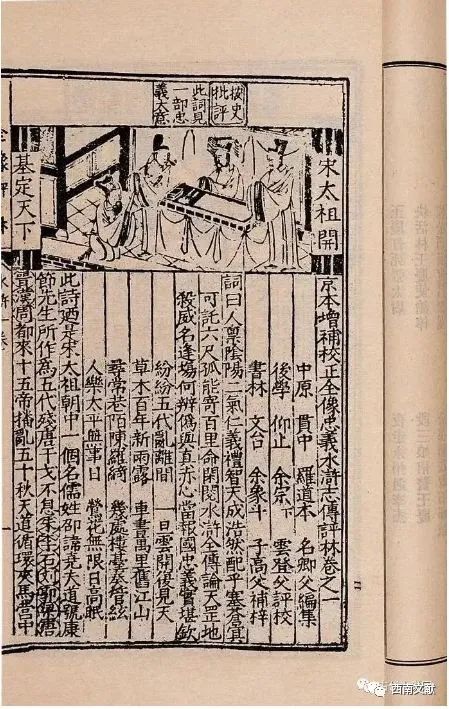 按史
批評
此詞見
一部忠
義大意
宋太祖開
基定天下
京本增補校正全像忠義水滸志傳評林卷之一
中原 貫中 羅道本 名卿父編集
後學 仰止 余宗下 雲登父評校
書林 文台 余象斗 子高父補梓
詞曰人稟陰陽二氣仁義禮智天成浩然配乎塞蒼冥
可託六尺孤能寄百里命閑閱水滸全傳論天罡地
殺威名逢場何辯偽與真赤心當報國忠義實堪欽
紛紛五代亂離間 一旦雲開復見天
草木百年新雨露 車書萬里舊江山
尋常巷陌陳羅綺 幾處樓臺奏管絃
人樂太平無事日 鶯花無限日高眠
此詩廼是宋太祖朝中一個名儒姓邵諱堯夫道號康
節先生所作為五代殘唐干戈不息朱李石刘郭梁唐
晉漢周都來十五帝播亂五十秋天道循環夾馬營中
西南文献